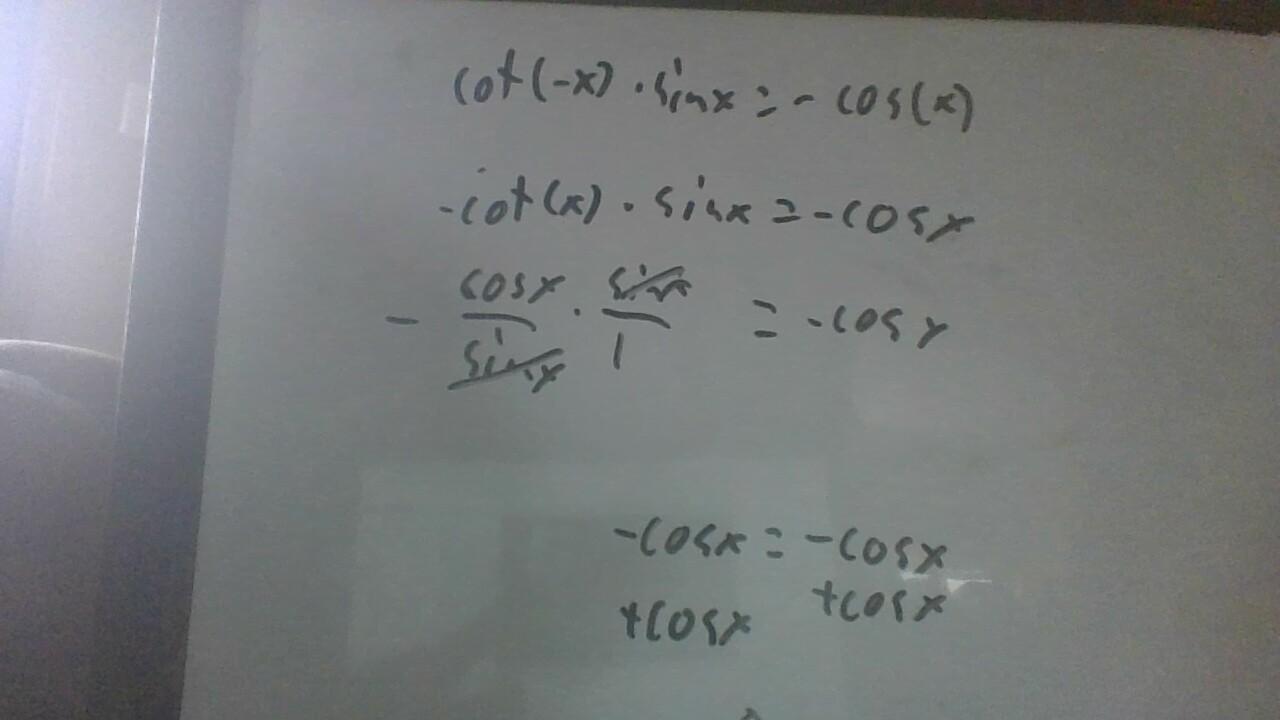 cot(-x) · sinx = - cos(x)
-cot(x) · sinx = -cosx
- cosx/sinx · sinx/1 = -cosx
-cosx = -cosx
+cosx +cosx